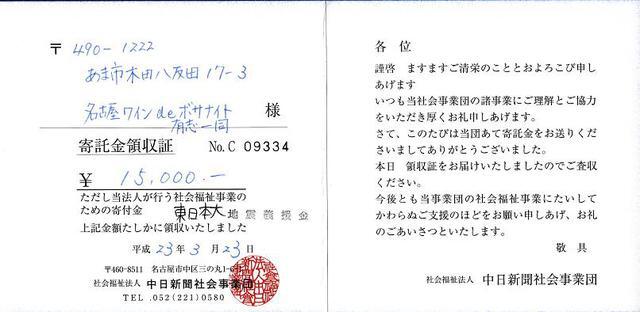 〒 490-1222
あま市木田八反田17-3
名古屋ワインdeボサナイト
有志一同 様
寄託金領収証 No. C 09334
¥ 15,000.-
ただし当法人が行う社会福祉事業の
ための寄付金 東日本大地震義援金
上記金額たしかに領収いたしました
平成 23年 3月 23日
〒460-8511 名古屋市中区三の丸1-6
社会福祉法人 中日新聞社会事業団
TEL.052(221)0580
各位
謹啓 ますますご清栄のこととおよろこび申し
あげます
いつも当社会事業団の諸事業にご理解とご協力
をいただき厚くお礼申しあげます。
さて、このたびは当団あて寄託金をお送りくだ
さいましてありがとうございました。
本日 領収証をお届けいたしましたのでご査収
ください。
今後とも当事業団の社会福祉事業にたいして
かわらぬご支援のほどをお願い申しあげ、お礼
のごあいさつといたします。
敬具
社会福祉法人 中日新聞社会事業団